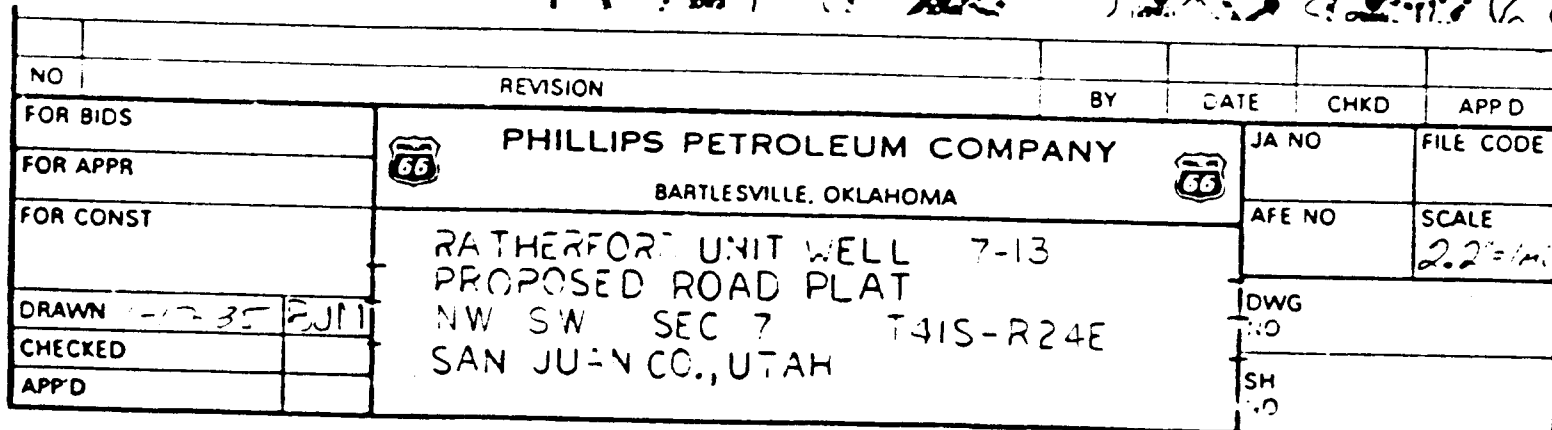 NO REVISION BY DATE CHKD APP'D
FOR BIDS
FOR APPR
FOR CONST
DRAWN
CHECKED
APP'D
66 PHILLIPS PETROLEUM COMPANY 66
BARTLESVILLE, OKLAHOMA
RATHERFORD UNIT WELL 7-13
PROPOSED ROAD PLAT
NW SW SEC 7 T41S-R24E
SAN JUAN CO., UTAH
JA NO FILE CODE
AFE NO SCALE
DWG NO
SH NO